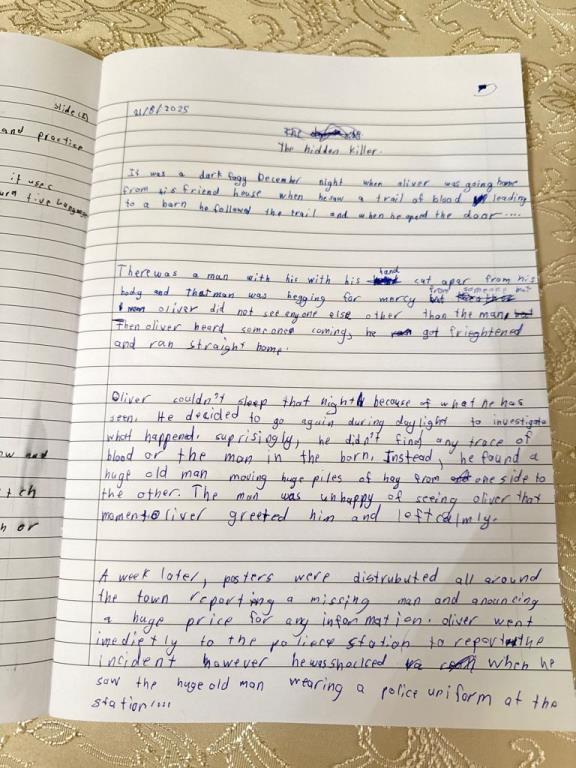 slide(2)
and practice
it uses
21/8/2025
The
The hidden killer.
It was a dark fogy December night when oliver was going home
from his friend house when he saw a trail of blood leading
to a barn he followed the trail and when he opend the door....
There was a man with his with his hand cut apar from his
body and That man was begging for mercy from someone but
oliver did not see enyone else other than the man,
Then oliver heard someone coming, he got frieghtened
and ran straight home.
Oliver couldn't sleep that night because of what he has
seen. He decided to go again during day light to investigate
what happend. suprisingly, he didn't find any trace of
blood or the man in the born. Instead, he found a
huge old man moving huge piles of hay from one side to
the other. The man was unhappy of seeing oliver that
moment. Oliver greeted him and left calmly.
A week later, posters were distrubuted all around
the town reporting a missing man and anouncing
a huge price for any information. oliver went
imedietly to the police station to report the
incident however he was shocked when he
saw the huge old man wearing a police uniform at the
station....